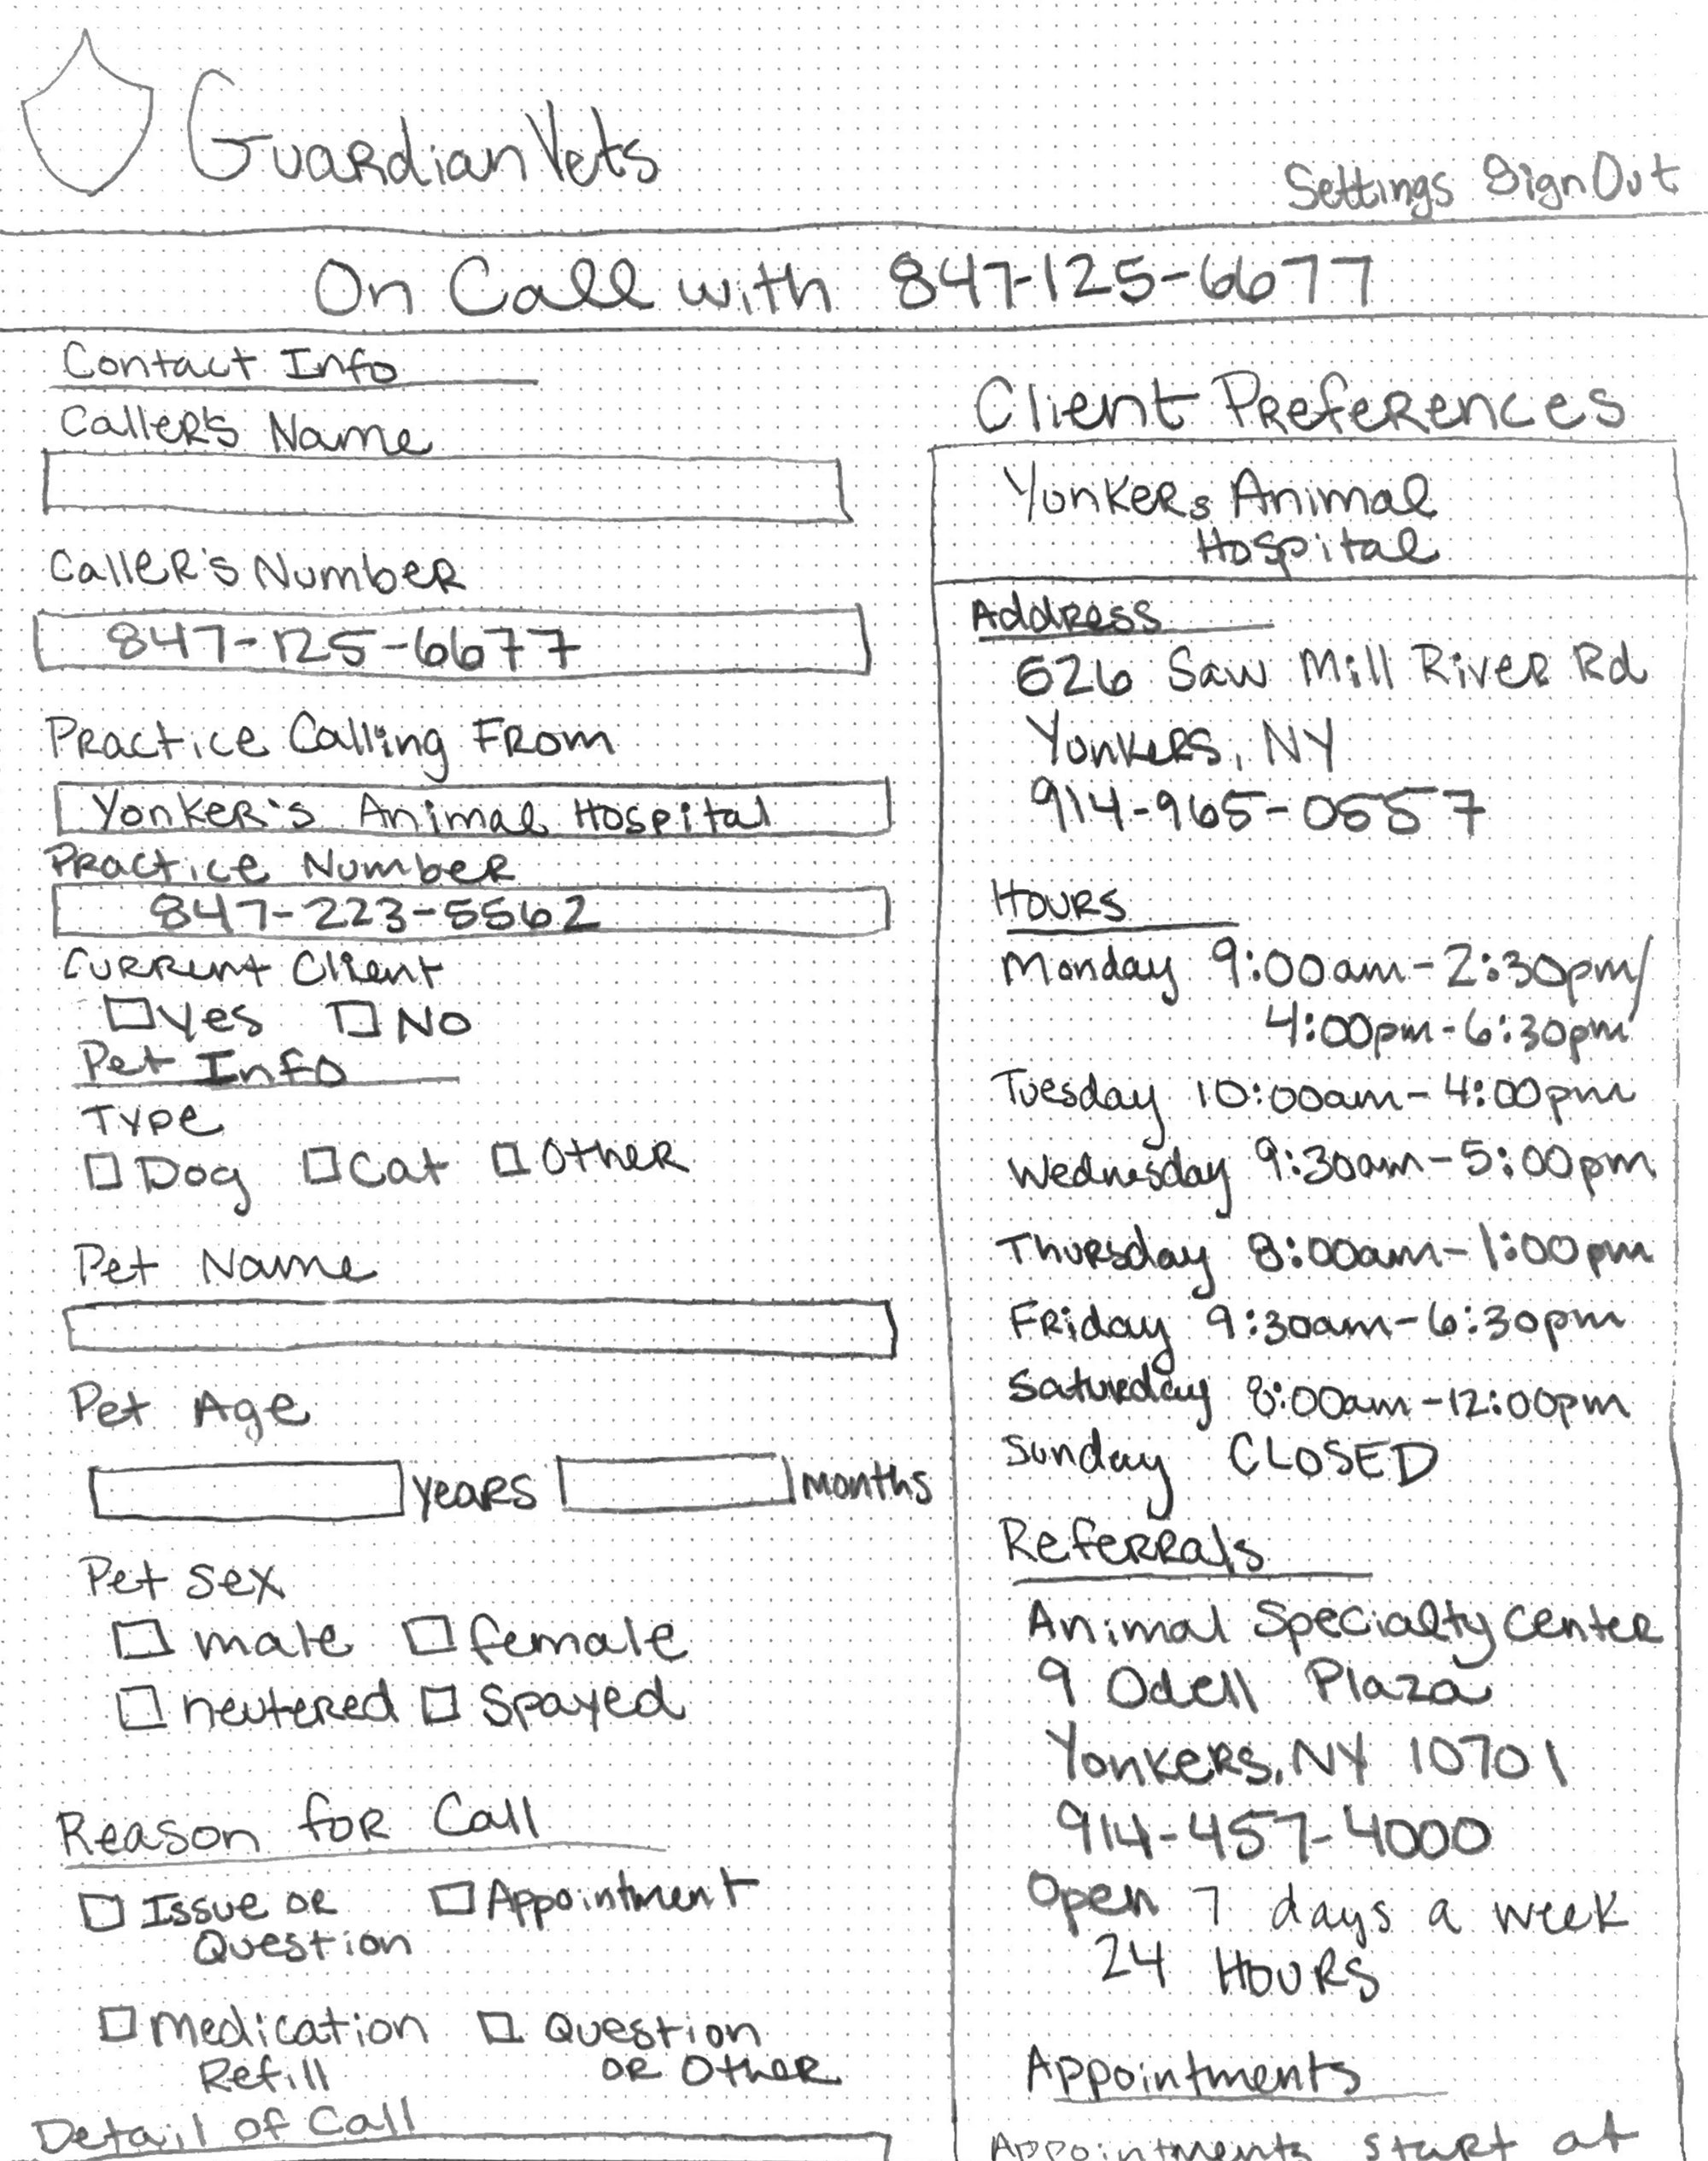 GuardianVets
Settings Sign Out
On Call with 847-125-6677
Contact Info
Caller's Name
Caller's Number
847-125-6677
Practice Calling From
Yonker's Animal Hospital
Practice Number
847-223-5562
Current Client
Yes No
Pet Info
Type
Dog Cat Other
Pet Name
Pet Age
years months
Pet Sex
male female
neutered Spayed
Reason for Call
Issue or Appointment
Question
Medication Question
Refill or Other
Detail of Call
Client Preferences
Yonkers Animal
Hospital
Address
626 Saw Mill River Rd
Yonkers, NY
914-965-0557
Hours
Monday 9:00am-2:30pm/
4:00pm-6:30pm
Tuesday 10:00am-4:00pm
Wednesday 9:30am-5:00pm
Thursday 8:00am-1:00pm
Friday 9:30am-6:30pm
Saturday 8:00am-12:00pm
Sunday CLOSED
Referrals
Animal Specialty Center
9 Odell Plaza
Yonkers, NY 10701
914-457-4000
Open 7 days a week
24 Hours
Appointments
Appointments start at